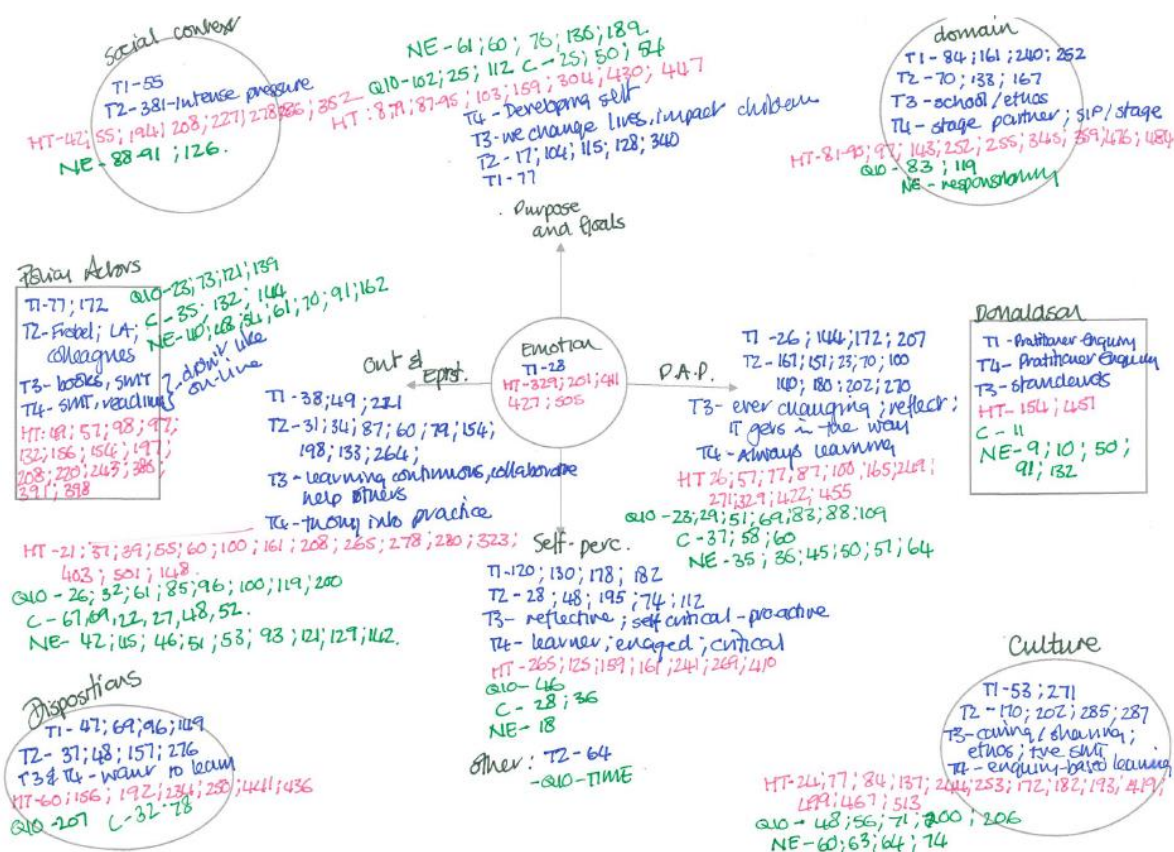 Social context
T1-55
T2-381-intense pressure
HT-42; 55; 194; 208; 227; 278; 286; 352
NE-88-91; 126.
NE-61; 60; 76; 136; 189.
Q10-102; 25; 112 C-25; 50; 54
HT: 8, 79; 87-95; 103; 159; 304; 430; 447
T4- Developing self
T3-we change lives, impact children
T2-17; 104; 115; 128; 340
T1-77
Purpose
and Goals
domain
T1-84; 161; 240; 252
T2-70; 133; 167
T3-school/ethos
T4-stage partner; SIP/stage
HT-81-90; 97; 143; 252; 255; 345; 359; 476; 484
Q10-83; 119
NE-responsibility
Policy Actors
T1-77; 172
T2-Frobel; LA;
colleagues
T3-books, SMT
T4-SMT, reading
don't like
on-line
Q10-23; 73; 121; 139
C-35; 132; 144
NE-40; 48; 54; 61; 70; 91; 162
HT: 49; 57; 98; 97;
132; 156; 154; 197;
208; 220; 243; 386;
391; 398
Emotion
T1-28
HT-329; 201; 411
427; 505
Ont &
Epist.
T1-38; 49; 221
T2-31; 34; 87; 60; 79; 154;
198; 133; 264;
T3-learning continuous, collaborative
help others
T4-theory into practice
HT-21; 37; 39; 55; 60; 100; 161; 208; 265; 278; 280; 323;
403; 501; 148.
Q10-26; 32; 61; 85; 96; 100; 119; 200
C-67, 69, 22, 27, 48, 52.
NE-42; 45; 46; 51; 53; 93; 121; 129; 142.
P.A.P.
T1-26; 144; 172; 207
T2-167; 151; 23; 70; 100
140; 180; 202; 270
T3-ever changing; reflect;
IT gets in the way
T4-Always learning
HT 26; 57; 77; 87; 100; 165; 249;
271; 329; 422; 455
Q10-23; 29; 51; 69; 83; 88; 109
C-37; 58; 60
NE-35; 36; 45; 50; 57; 64
Donaldson
T1-Practitioner Enquiry
T4-Practitioner Enquiry
T3-standards
HT-154; 451
C-11
NE-9; 10; 50;
91; 132
Self-perc.
T1-120; 130; 178; 182
T2-28; 48; 195; 74; 112
T3-reflective; self critical-proactive
T4-learner; engaged; critical
HT-265; 125; 159; 161; 241; 269; 410
Q10-46
C-28; 36
NE-18
other: T2-64
-Q10-TIME
Dispositions
T1-47; 69; 96; 149
T2-37; 48; 157; 276
T3 & T4-want to learn
HT-60; 156; 192; 234; 250; 441; 436
Q10-207 C-32-78
Culture
T1-53; 271
T2-170; 202; 285; 287
T3-caring/sharing;
ethos; +ve SMT
T4-enquiry-based learning
HT-24; 77; 84; 137; 244; 253; 172; 182; 193; 419;
499; 467; 513
Q10-48; 56; 71; 200; 206
NE-60; 63; 64; 74